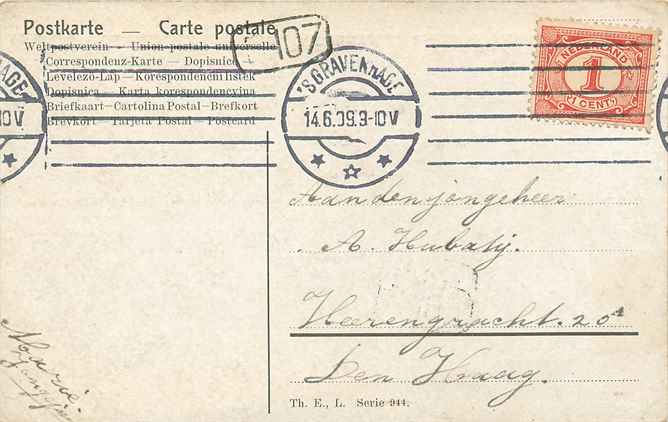 Postkarte — Carte postale
107
Weltpostverein - Union postale universelle
Correspondenz-Karte — Dopisnice
Levelező-Lap — Korespondenčni listek
Dopisnica — Karta korespondencyjna
Briefkaart - Cartolina Postal - Brefkort
Brevkort - Tarjeta Postal - Postcard
'S GRAVENHAGE
14.6.09.9-10V
AGE
10V
NEDERLAND
1
CENT
Aan den jongeheer
A. Hubatý.
Heerengracht. 20ᴬ
Den Haag.
Marie.
Th. E., L. Serie 944.